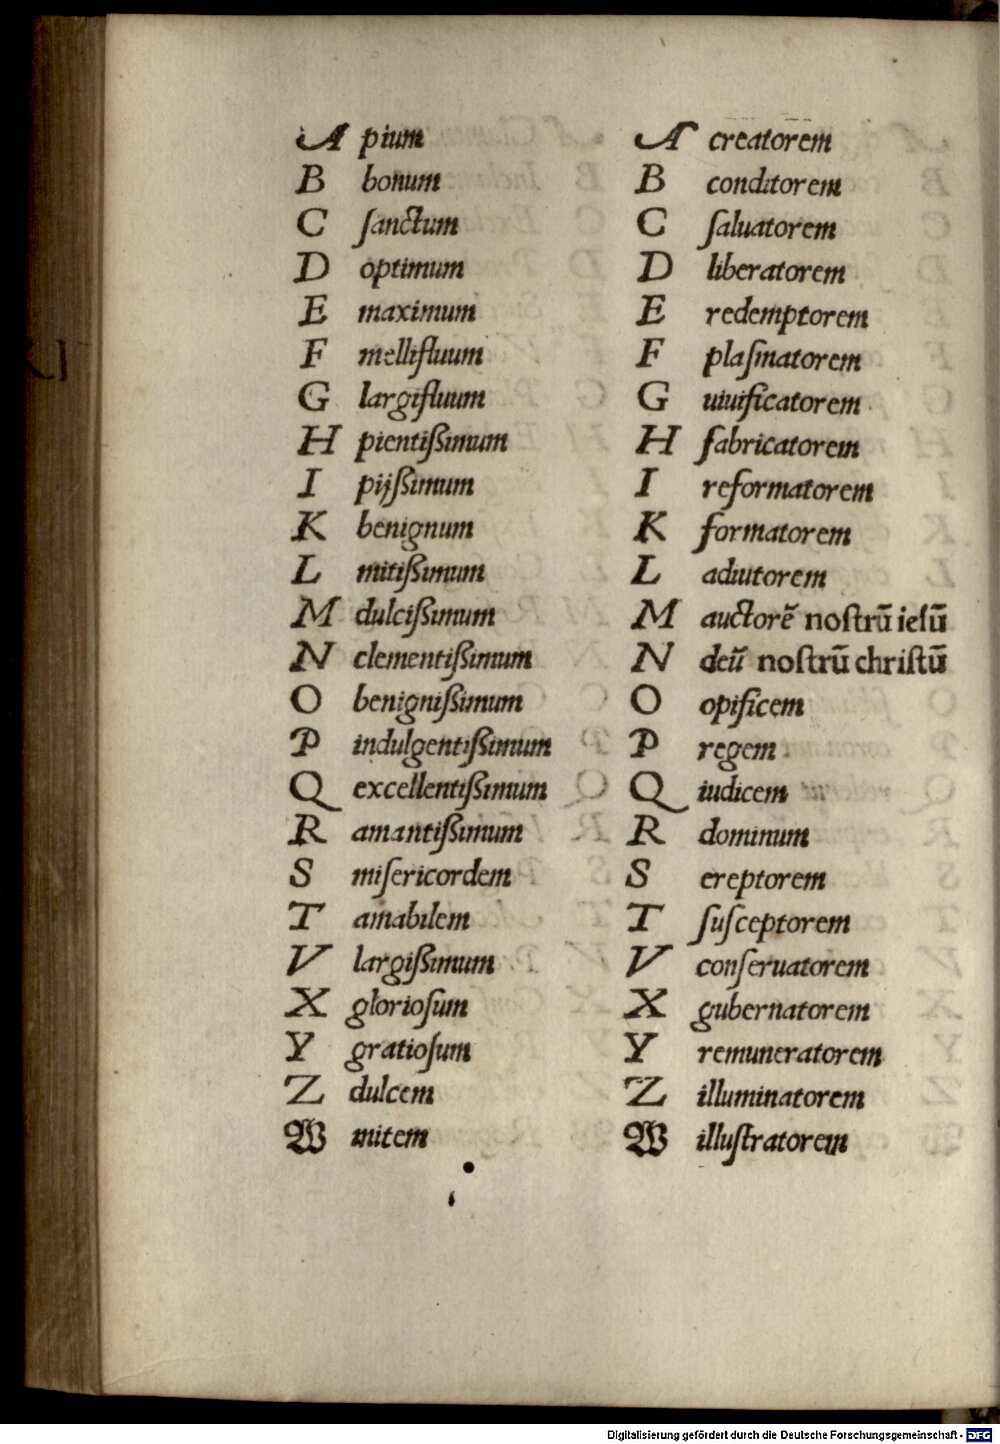 A pium
B bonum
C ſanctum
D optimum
E maximum
F mellifluum
G largifluum
H pientiſſimum
I pijſſimum
K benignum
L mitiſſimum
M dulciſſimum
N clementiſſimum
O benigniſſimum
P indulgentiſſimum
Q excellentiſſimum
R amantiſſimum
S miſericordem
T amabilem
V largiſſimum
X glorioſum
Y gratioſum
Z dulcem
W mitem
A creatorem
B conditorem
C ſaluatorem
D liberatorem
E redemptorem
F plaſmatorem
G uiuificatorem
H fabricatorem
I reformatorem
K formatorem
L adiutorem
M auctorẽ noſtrũ ieſũ
N deũ noſtrũ chriſtũ
O opificem
P regem
Q iudicem
R dominum
S ereptorem
T ſuſceptorem
V conſeruatorem
X gubernatorem
Y remuneratorem
Z illuminatorem
W illuſtratorem
Digitalisierung gefördert durch die Deutsche Forschungsgemeinschaft - DFG